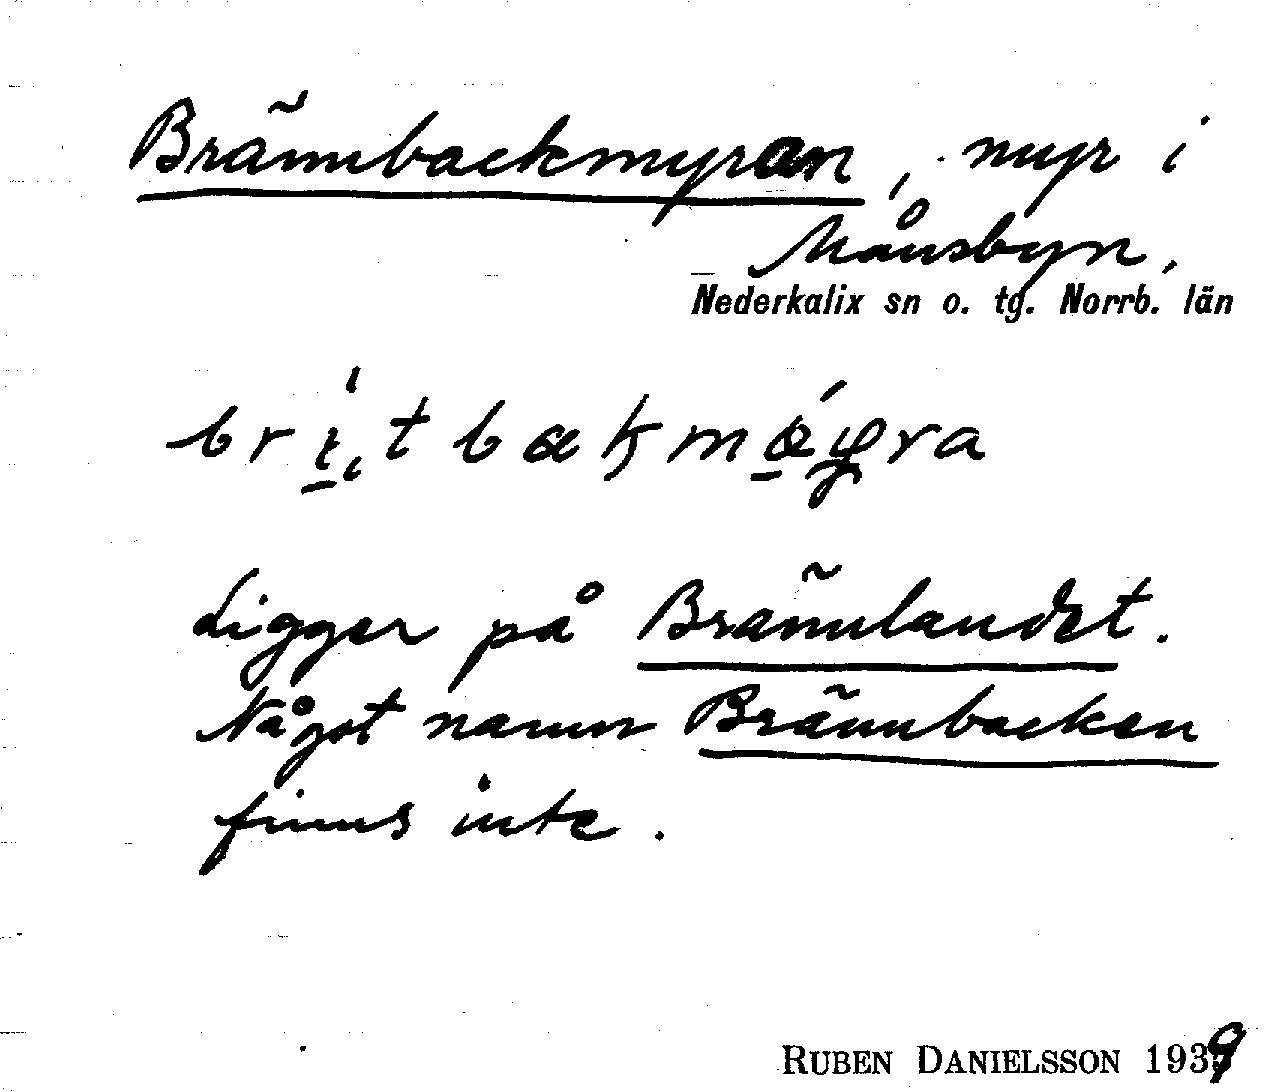 Brännbackmyran, myr i
Månsbyn,
Nederkalix sn o. tg. Norrb. län
Ligger på Brännlandet.
Något namn Brännbacken
finns inte.
RUBEN DANIELSSON 1939